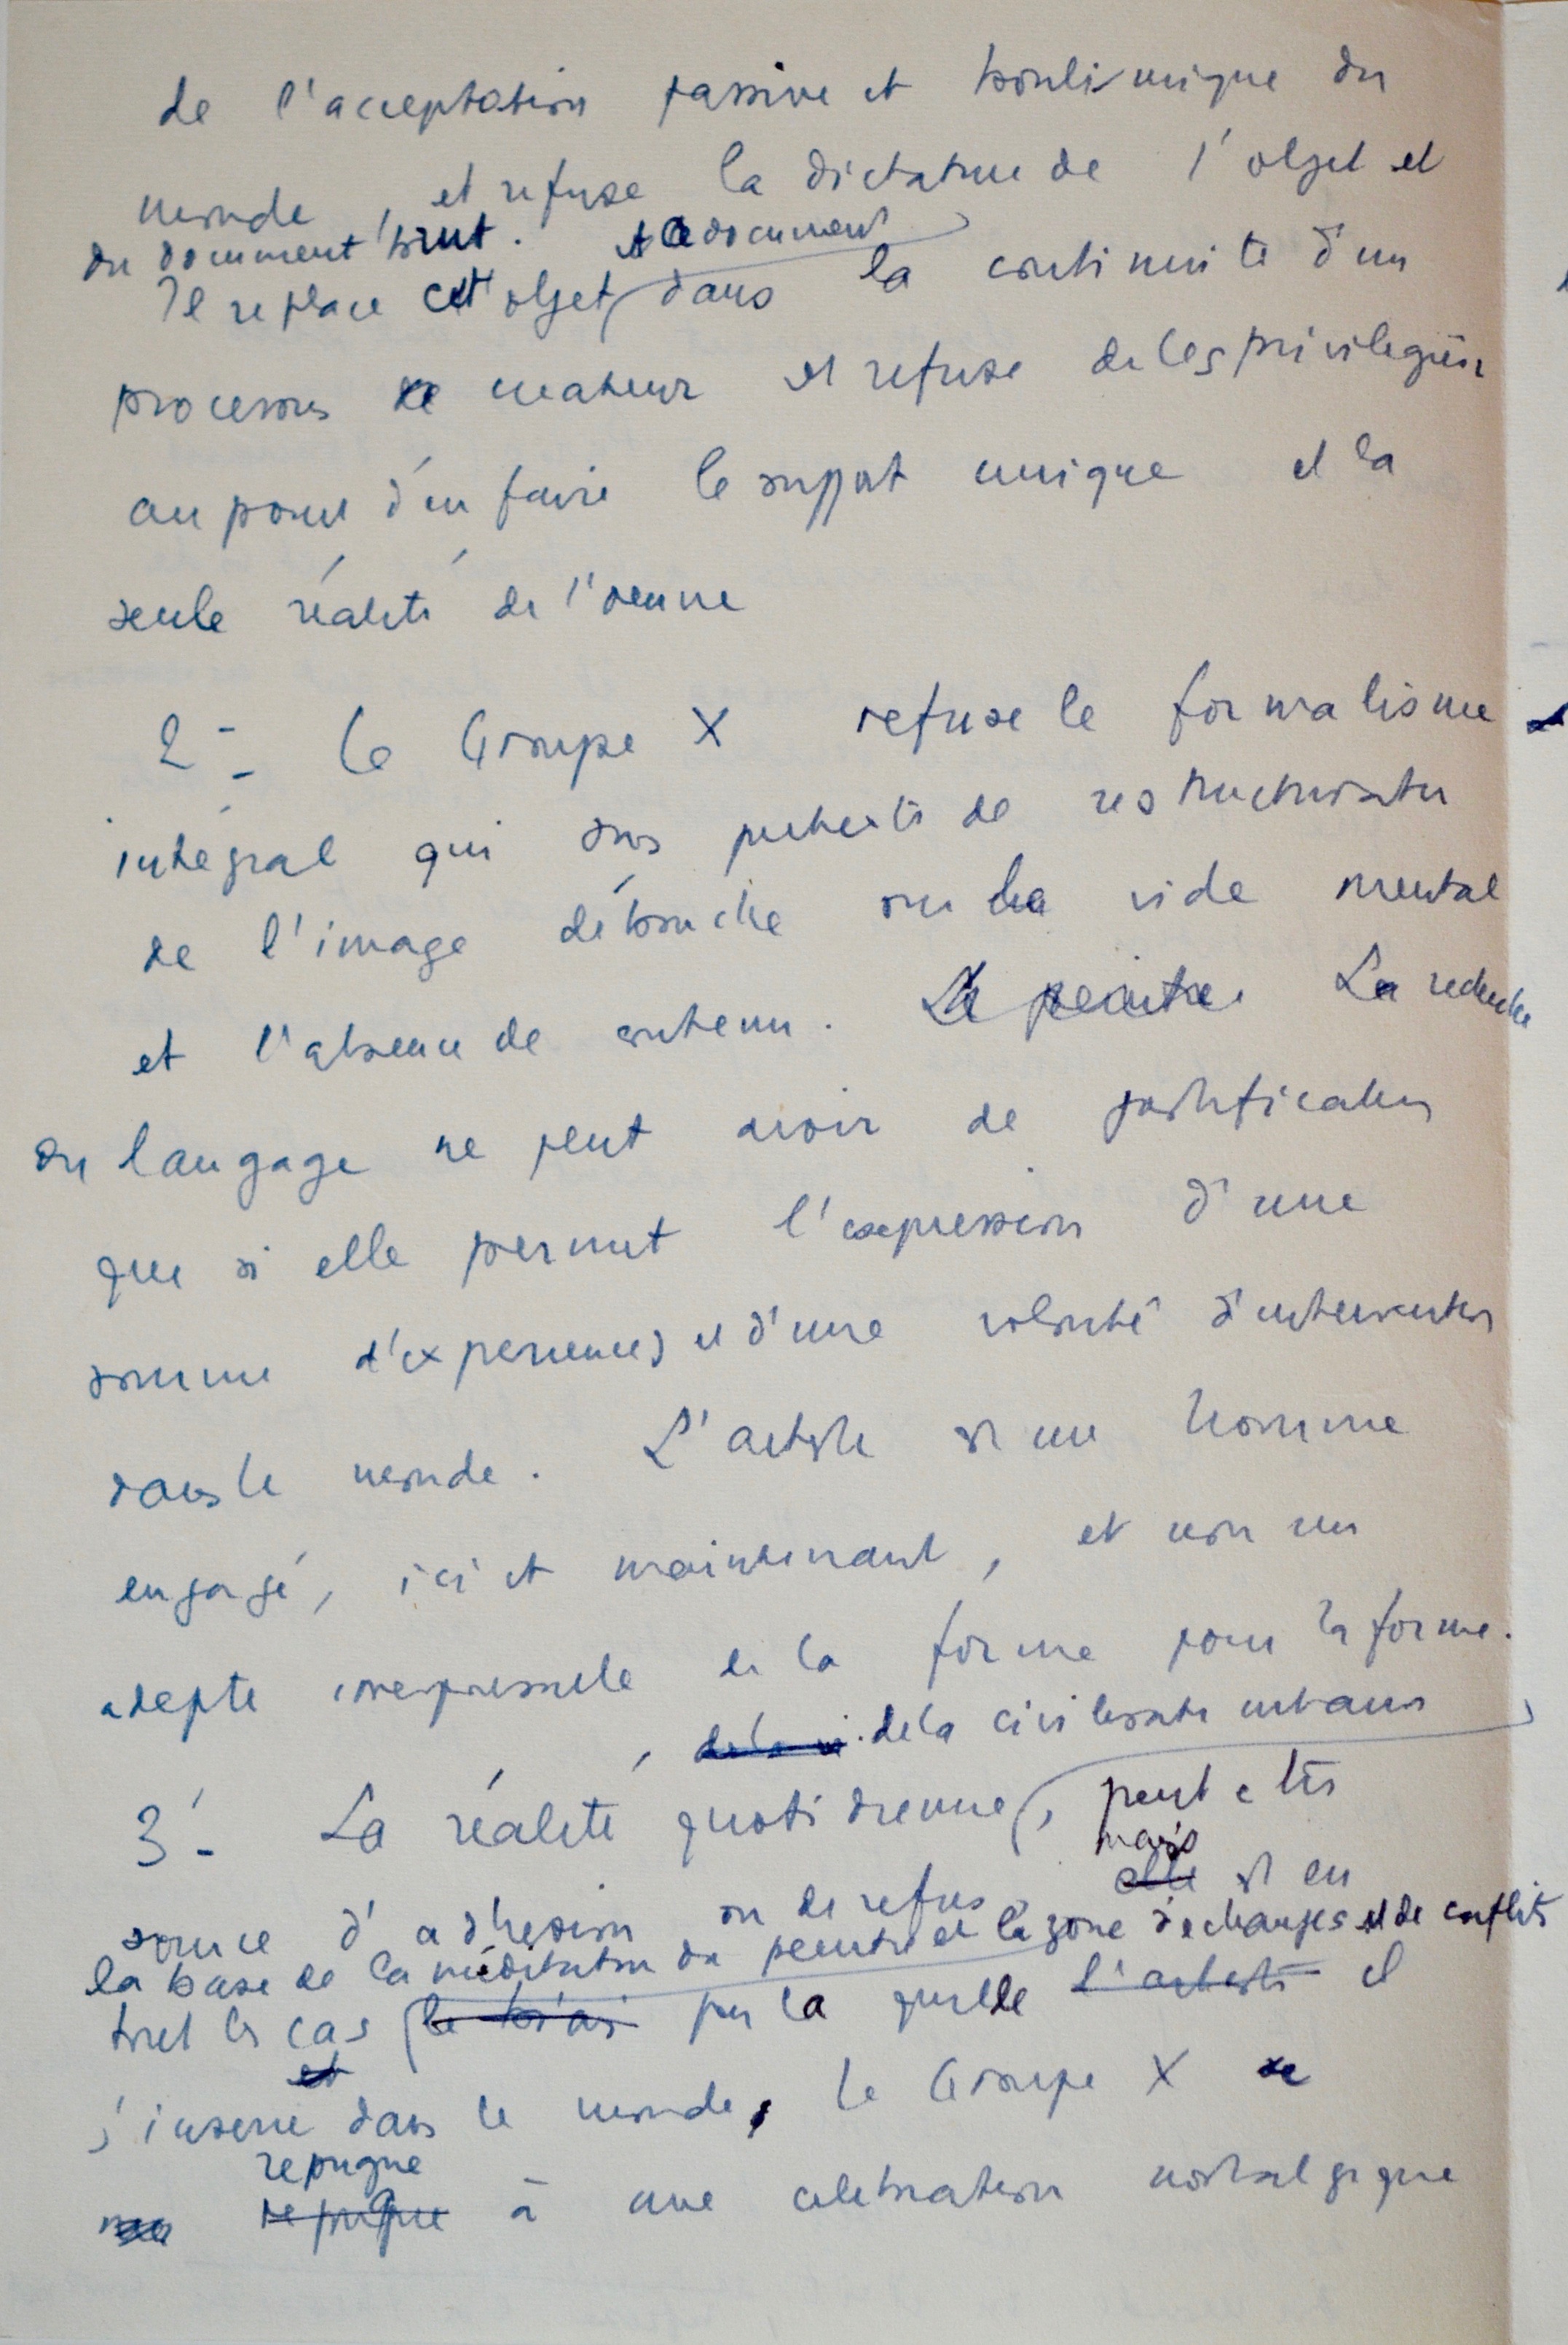 de l'acceptation passive et boulimique du
monde, et refuse la dictature de l'objet et
du document brut. et ce document
Il replace cet objet dans la continuité d'un
processus createur et refuse de les privilegier
au point d'en faire le support unique et la
seule réalité de l'oeuvre
2 - Le Groupe X refuse le formalisme
intégral qui sous pretexte de restructuration
de l'image débouche sur le vide mental
et l'absence de contenu. Le peintre. La recherche
du langage ne peut avoir de justification
que si elle permet l'expression d'une
somme d'experiences et d'une volonté d'intervention
dans le monde. L'artiste est un homme
engagé, ici et maintenant, et non un
adepte irresponsable de la forme pour la forme.
, de la civilisation urbaine
3 - La réalité quotidienne, peut etre
mais
source d'adhesion ou de refus elle est en
la base de la méditation du peintre et la zone d'echanges et de conflits
tout les cas le biais par laquelle l'artiste il
et
s'insere dans le monde, le Groupe X
repugne
repugne à une celebration nostalgique